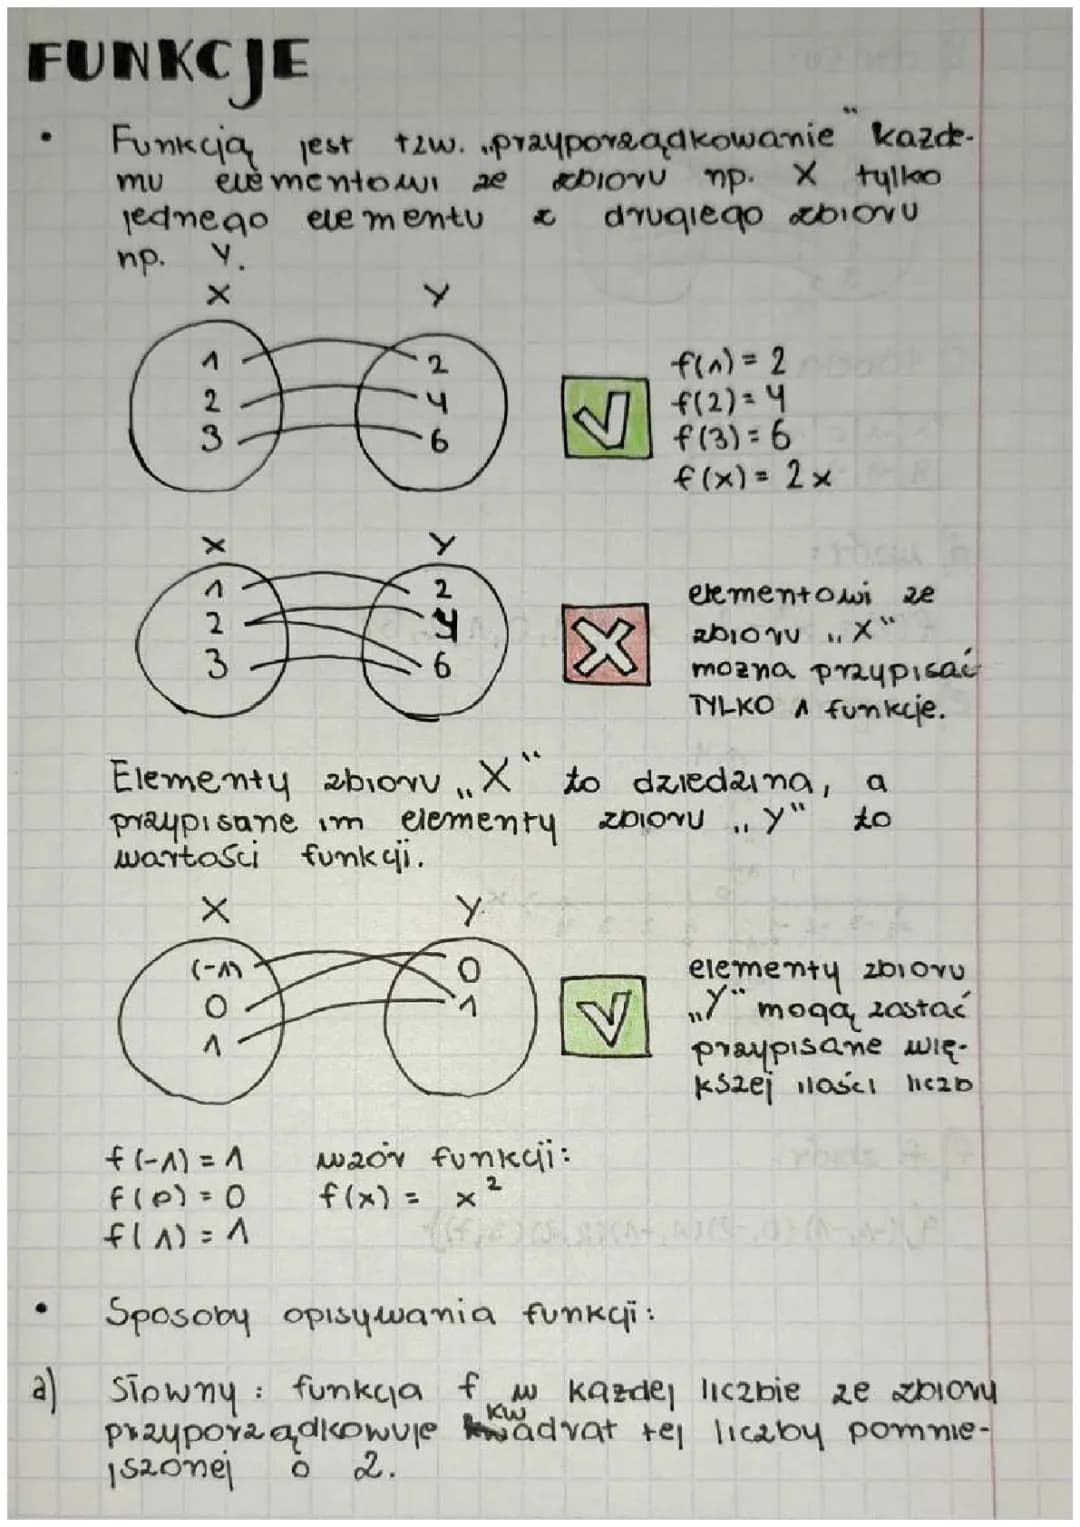 FUNKCJE
• Funkcją jest tzw. „przyporządkowanie" każde-
mu elementowi ze zbioru np. X tylko
jednego elementu z drugiego zbioru
np. Y.
X Y
1 2
2 4
3 6
f(1) = 2
f(2) = 4
f(3) = 6
f(x) = 2x
X Y
1 2
2 4
3 6
elementowi ze
zbioru „X"
można przypisać
TYLKO 1 funkcje.
Elementy zbioru „X" to dziedzina, a
przypisane im elementy zbioru „Y" to
wartości funkcji.
X Y
(-1) 0
0 1
1
elementy zbioru
„Y" mogą zostać
przypisane wię-
kszej ilości liczb
f(-1) = 1 wzór funkcji:
f(0) = 0 f(x) = x²
f(1) = 1
• Sposoby opisywania funkcji:
a) Słowny: funkcja f w każdej liczbie ze zbioru
przyporządkowuje kwadrat tej liczby pomnie-
jszonej o 2.